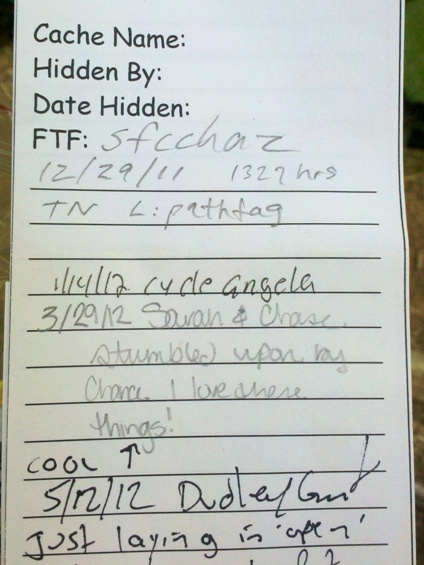 Cache Name:
Hidden By:
Date Hidden:
FTF: sfcchaz
12/29/11 1327 hrs
TN L: pathtag
1/14/12 cycle angela
3/29/12 Sarah & Chase.
stumbled upon by
Chance. I love these
things!
COOL ↑
5/12/12 Dudley
Just laying in 'open'